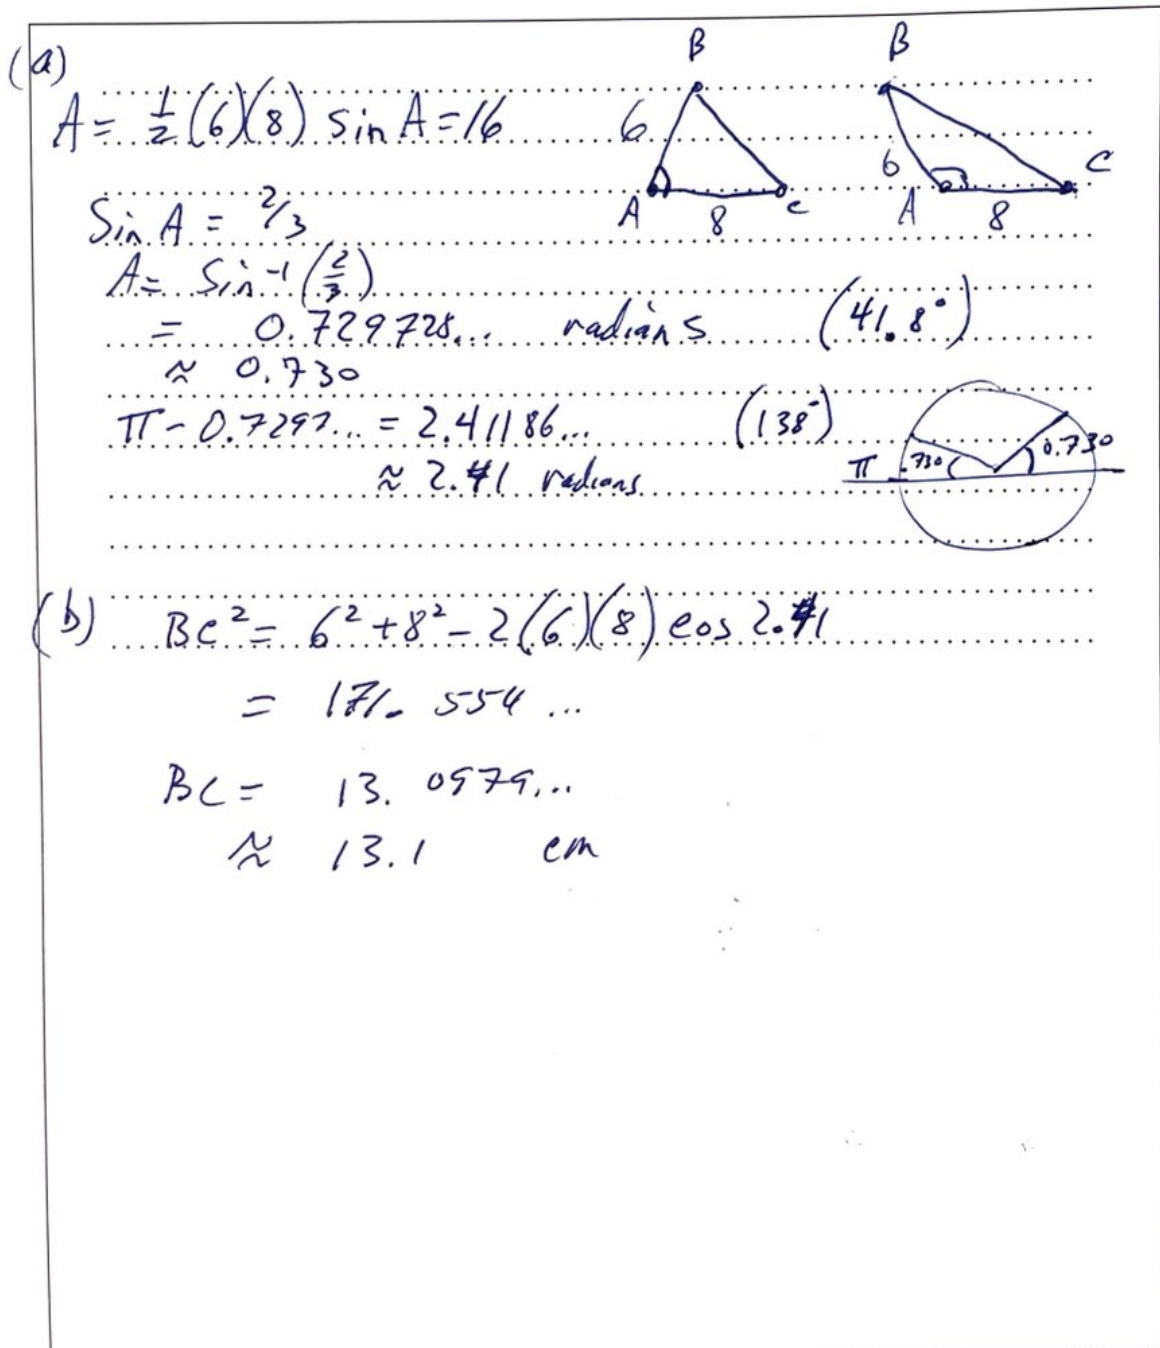 (a)
A = 1/2 (6)(8) sin A = 16
B
6
A
8
C
B
6
A
8
C
Sin A = 2/3
A = Sin⁻¹ (2/3)
= 0.729728... radians (41.8°)
≈ 0.730
π - 0.7297... = 2.41186... (138°)
≈ 2.41 radians
π .730 0.730
(b) BC² = 6² + 8² - 2(6)(8) cos 2.41
= 171.554...
BC = 13.0979...
≈ 13.1 cm